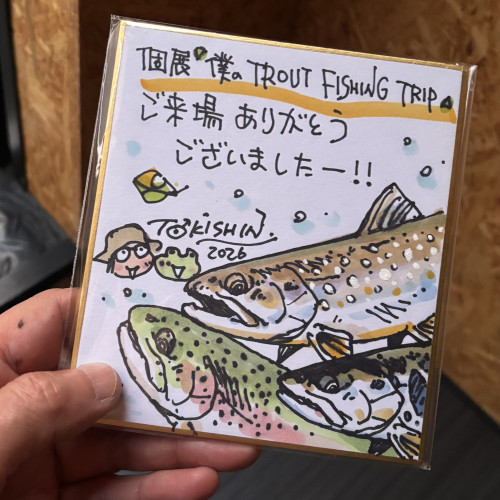 個展 僕の TROUT FISHING TRIP
ご来場 ありがとう
ございましたー!!
TOKISHIN
2026